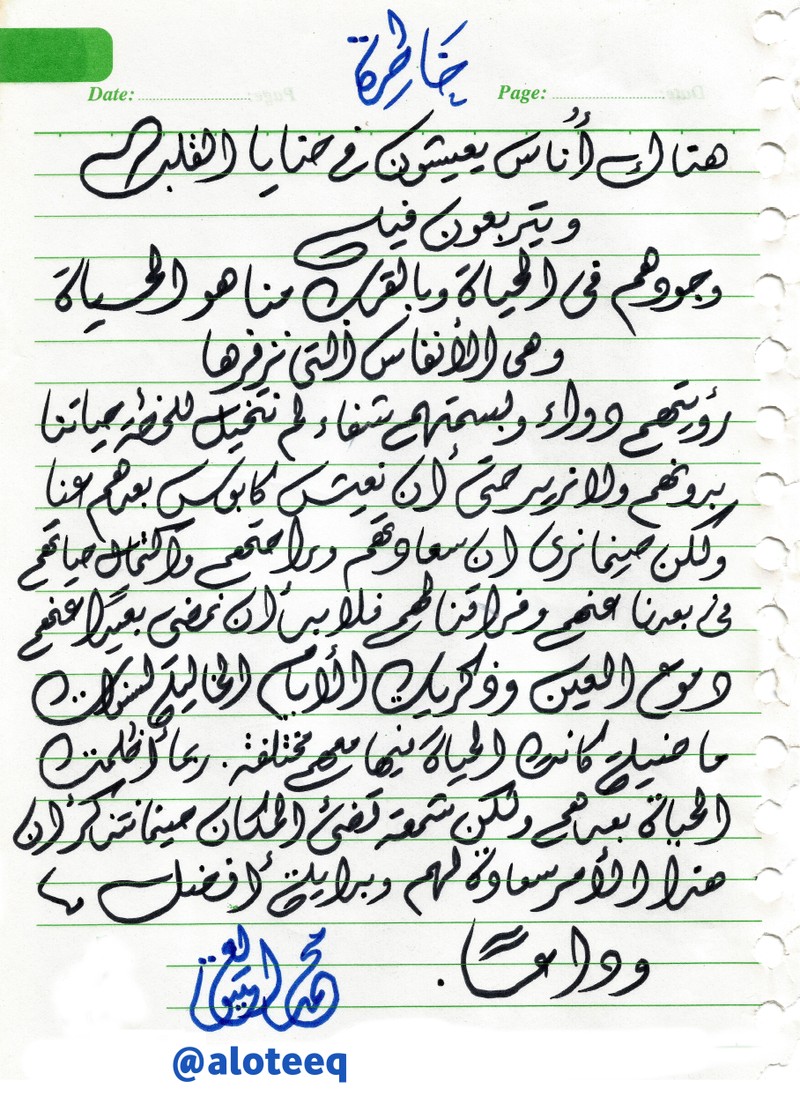 خاطرة
Date: Page:
هناك أُناس يعيشون في حنايا القلب
ويتربعون فيه
وجودهم في الحياة وبالقرب منا هو الحياة
وهي الأنفاس التي نزفرها
رؤيتهم دواء وبسمتهم شفاء لم نتخيل للحظة حياتنا
بدونهم ولا نريد حتى أن نعيش كابوس بعدهم عنا
ولكن حينما نرى ان سعادتهم وراحتهم واكتمال حياتهم
في بعدنا عنهم وفراقنا لهم فلا بد ان نمضي بعيدًا عنهم
دموع العين وذكريات الأيام الخالية لسنوات
ماضية كانت الحياة فيها معهم مختلفة . ربما أظلمت
الحياة بعدهم ولكن شمعة تضئ المكان حينما نتذكر ان
هذا الأمر سعادة لهم وبداية أفضل
وداعـًا .
محمد
@aloteeq